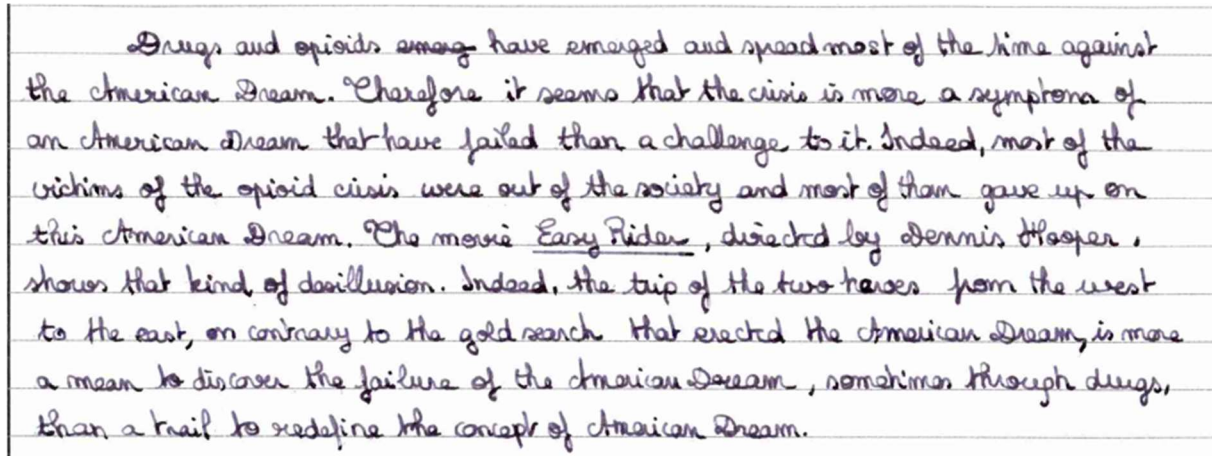 Drugs and opioids emerg have emerged and spread most of the time against
the American Dream. Therefore it seems that the crisis is more a symptom of
an American Dream that have failed than a challenge to it. Indeed, most of the
victims of the opioid crisis were out of the society and most of them gave up on
this American Dream. The movie Easy Rider, directed by Dennis Hooper,
shows that kind of desillusion. Indeed, the trip of the two heroes from the west
to the east, on contrary to the gold search that erected the American Dream, is more
a mean to discover the failure of the American Dream, sometimes through drugs,
than a trail to redefine the concept of American Dream.